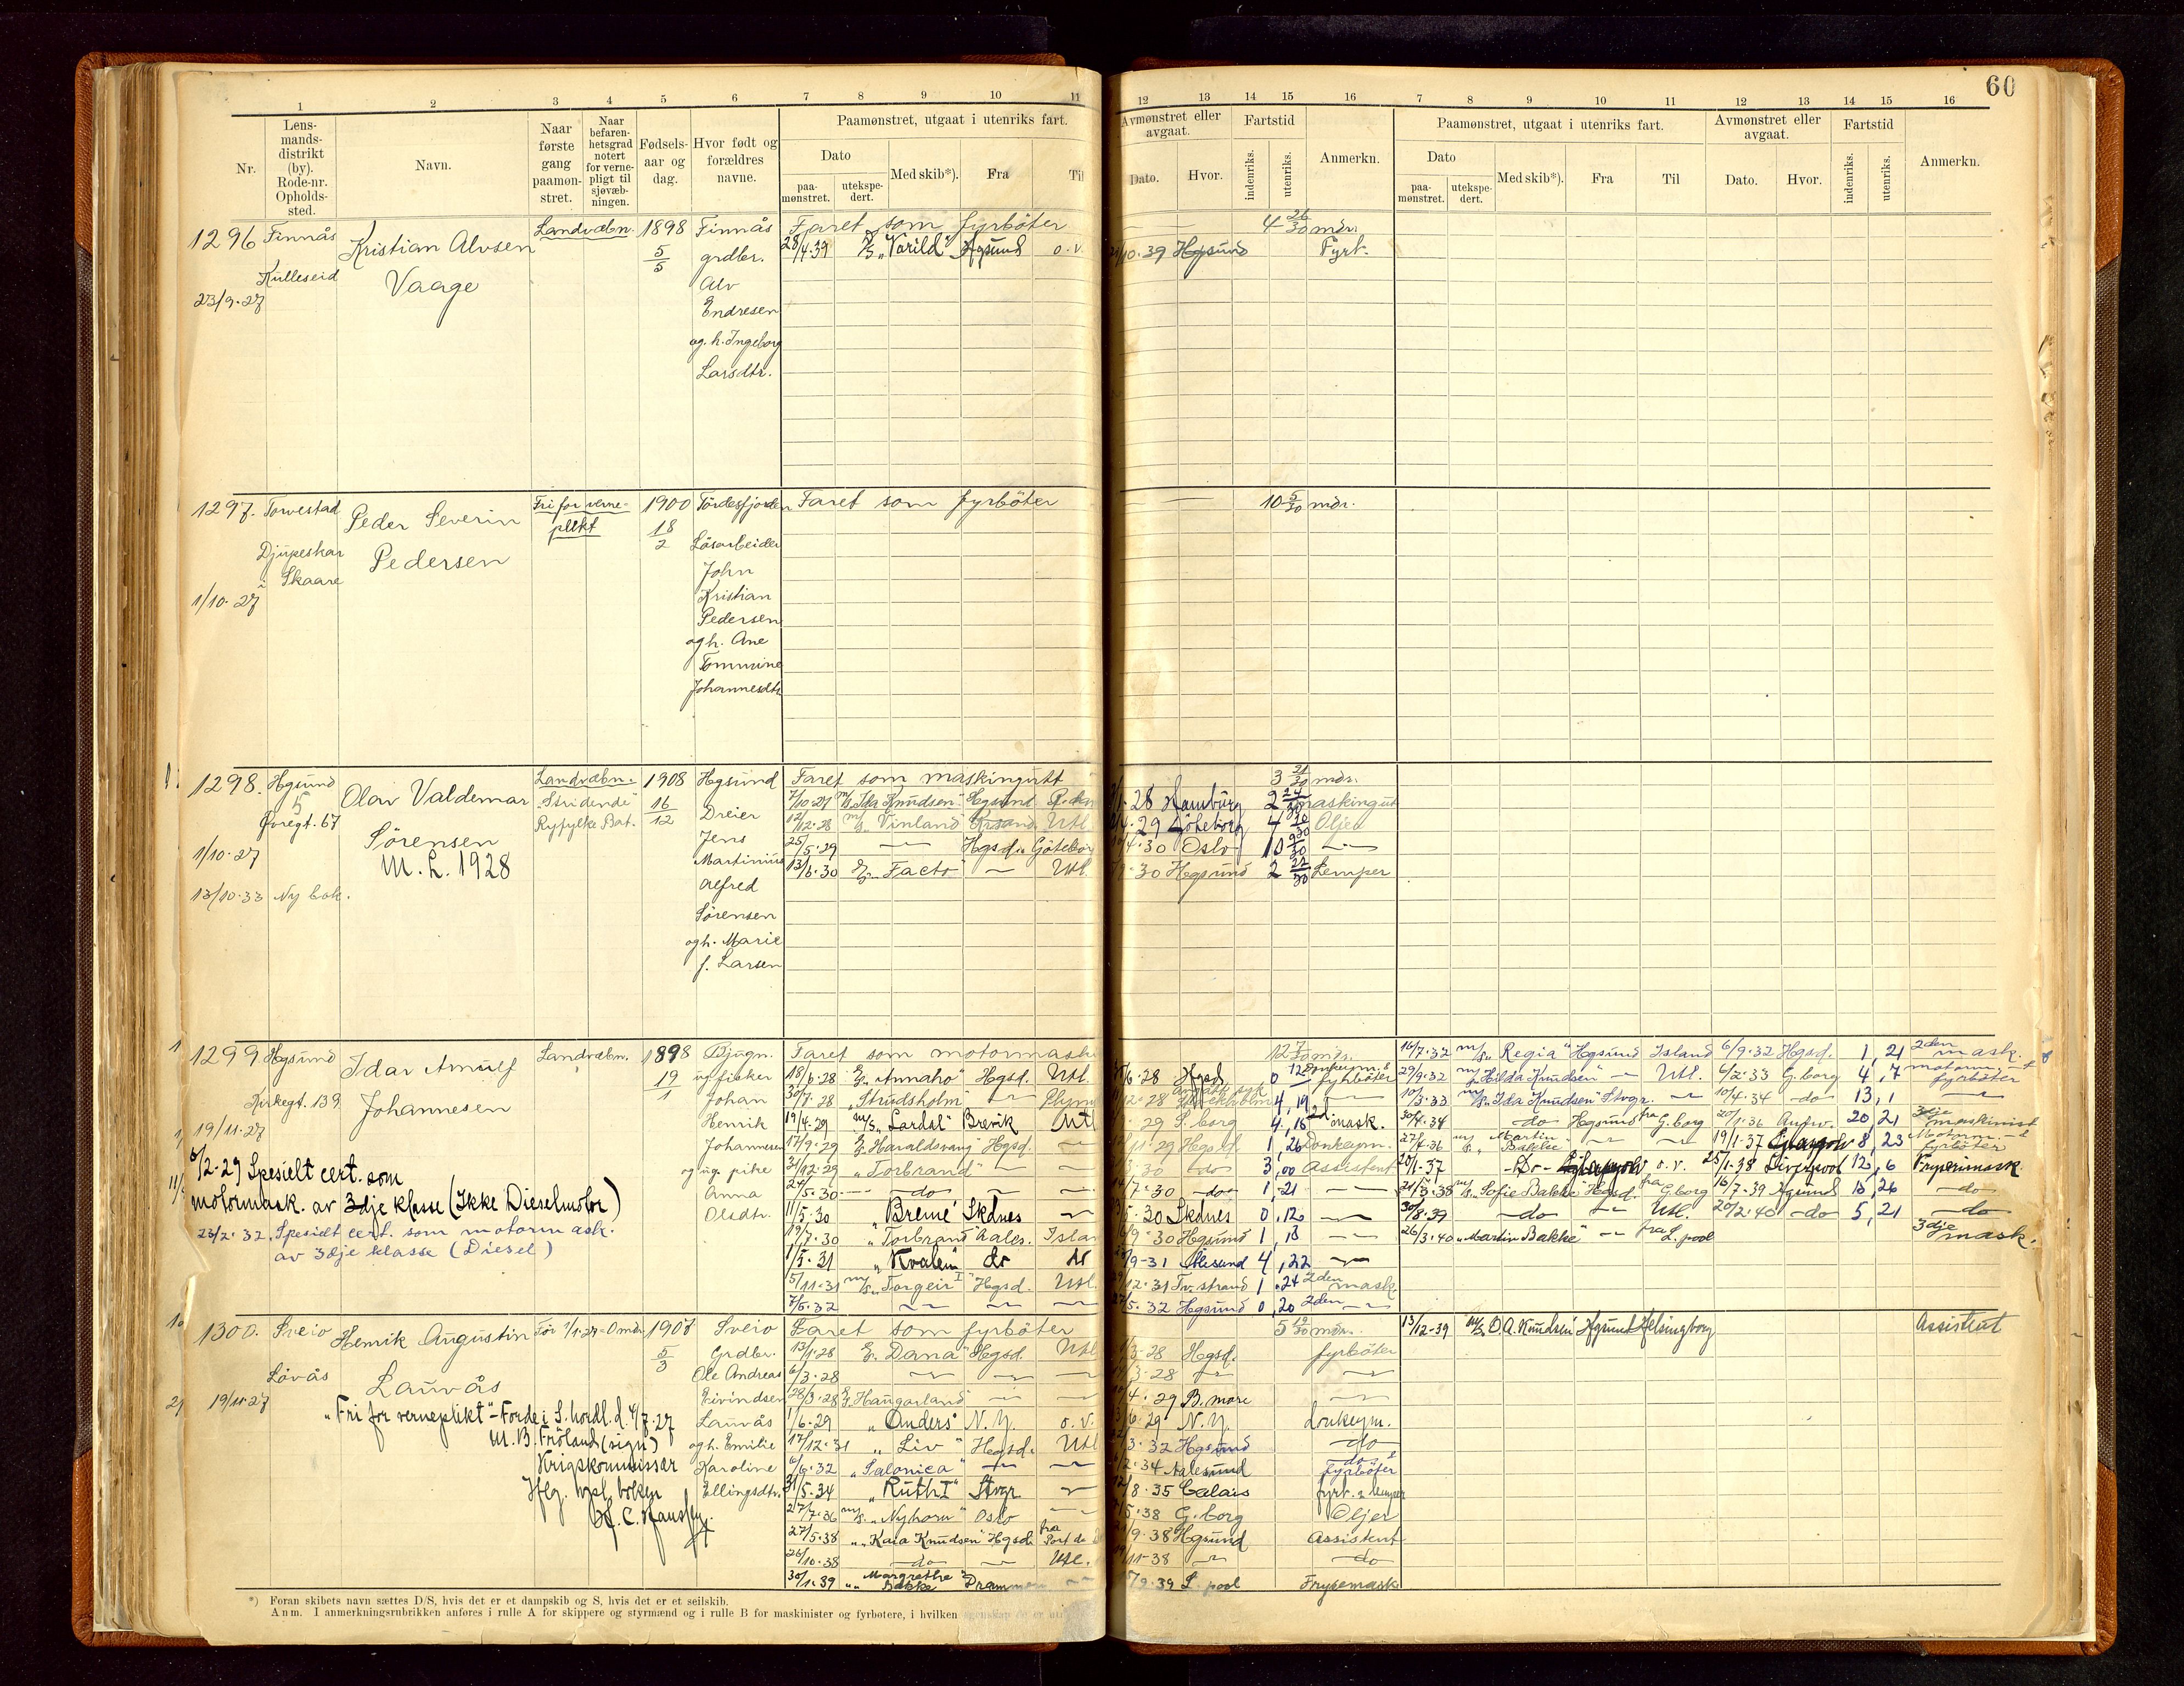 60
1 2 3 4 5 6 7 8 9 10 11 12 13 14 15 16 7 8 9 10 11 12 13 14 15 16
Nr.
Lens-
mands-
distrikt
(by).
Rode-nr.
Opholds-
sted.
Navn.
Naar
første
gang
paamøn-
stret.
Naar
befaren-
hetsgrad
notert
for verne-
pligt til
sjøvæb-
ningen.
Fødsels-
aar og
dag.
Hvor født og
forældres
navne.
Paamønstret, utgaat i utenriks fart.
Dato
paa-
mønstret.
utekspe-
dert.
Med skib*).
Fra
Til
Avmønstret eller
avgaat.
Dato.
Hvor.
Fartstid
indenriks.
utenriks.
Anmerkn.
Paamønstret, utgaat i utenriks fart.
Dato
paa-
mønstret.
utekspe-
dert.
Med skib*).
Fra
Til
Avmønstret eller
avgaat.
Dato.
Hvor.
Fartstid
indenriks.
utenriks.
Anmerkn.
1296 Finnås
Kulleseid
23/9.27
Kristian Alvsen
Vaage
Landvæbn.
1898
5/5
Finnås
grdbr.
Alv
Endresen
og h. Ingeborg
Larsdtr.
Faret som fyrböter 4 26/30 mdr.
28/4.39 "Varild" Hgsund o.v. 10.39 Hgsund Fyrb.
1297. Torvestad
Djupeskar
i Skaare
1/10.27
Peder Severin
Pedersen
Fri for verne-
plikt
1900
18/2
Tördesfjorden
Lösarbeider
John
Kristian
Pedersen
og h. Ane
Tommine
Johannesdtr
Faret som fyrböter 10 5/30 mdr.
1298. Hgsund
5
Øvregt. 67
1/10.27
13/10.33 Ny bok.
Olav Valdemar
Sörensen
M.L. 1928
Landvæbn.
"Stridende"
Ryfylke Bat.
1908
16/12
Hgsund
Dreier
Jens
Martinius
Alfred
Sörensen
og h. Marie
f. Larsen
Faret som maskingutt 3 21/30 mdr.
7/10.27 m/s "Ida Knudsen" Hgsund 28 Hamburg 2 24/30 maskingut
12/12.28 m/s "Vinland" Krsand Utl. 29 Göteborg 4 Oljer
25/5.29 Hgsd. 4.30 Oslo 10
13/6.30 "Facto" Utl. 30 Hegsund 2 Lemper
1299 Hgsund
Kirkegt. 139
19/11.27
Idar Arnulf
Johannesen
Landvæbn.
1898
19/1
Bjugn.
ug. fisker
Johan
Henrik
Johannesen
og ug. pike
Anna
Olsdtr.
6/2-29 Spesielt cert. som
motormask. av 3dje klasse (Ikke Dieselmotor)
23/2.32 Spesielt cert. som motormask.
av 3dje klasse (Diesel)
Faret som motormask 12 7/30 mdr.
18/6.28 "Annaho" Hgsd. Utl. 6.28 Hgsd. 0 12 fyrböter
30/7.28 "Strudsholm" 12.28 4,19
19/4.29 m/s "Lardal" Brevik Utl 29 G.borg 4,18 2d mask.
17/9.29 "Haraldsvang" Hgsd. 11.29 Hegsd. 1,26 Donkeym.
31/12.29 "Torbrand" 30 do 3,00 Assistent
24/5.30 do 7.30 do 1,21
11/5.30 "Breme" Skdnes 5.30 Skdnes 0,12
19/7.30 "Torbrand" Aales. 9.30 Hgsund 1,18
1/5.31 "Kvalen" do do 9-31 Ålesund 4,22
5/11.31 m/s "Torgeir I" Hegsd. Utl. 12.31 Tv.strand 1.24 2den mask
7/5.32 5.32 Hegsund 0,20 2den
16/7.32 m/s "Regia" Hgsund Island 6/9.32 Hgsd. 1,21 2den mask.
29/9.32 m/s "Hilda Knudsen" Utl. 6/2.33 G.borg 4,7 motorm. & fyrböter
10/3.33 m/s "Ida Knudsen" Stvgr. 10/4.34 do 13,1
30/4.34 do Hgsund fra G.borg 20/1.36 Antw. 20,21 3dje maskinist
27/4.36 m/s "Martin Bakke" 19/1.37 8,23 Motorm. & fyrböter
20/1.37 -Do- o.v. 25/1.38 Liverpool 12,6 Fryserimask.
21/3.38 m/s "Sofie Bakke" Hgsd. fra G.borg 16/7.39 Hgsund 15,26 do
30/8.39 do Utl. 20/2.40 do 5,21 do
26/3.40 "Martin Bakke" fra L.pool 3dje mask.
1300. Sveio
Lövås
19/11.27
Henrik Augustin
Lauvås
För 1/1.27-0 mdr
1907
5/3
Sveio
Grdbr.
Ole Andreas
Eivindsen
Lauvås
og h. Emilie
Karoline
Ellingsdtr.
"Fri for verneplikt" - Forde i S.hordl. d. 4/7.27
M.B. Fröland (sign)
Krigskommissær
Hfg. bysl. boken
Faret som fyrböter 5 19/30 mdr.
13/1.28 "Dana" Hegsd. Utl 3.28 Hegsd. fyrböter
6/3.28 3.28
28/3.28 "Haugarland" 4.29 B.more
1/6.29 "Anders" N.Y. o.v. 6.29 N.Y. donkeym.
17/12.31 "Liv" Hegsd. Utl 3.32 Hgsund do
6/6.32 "Salonica" 2.34 Aalesund do & fyrböter
31/5.34 "Ruth I" Stvgr 8.35 Calais fyrb. & lemper
27/7.36 m/s "Nyhorn" Oslo 5.38 G.borg Oljer
27/5.38 "Kaia Knudsen" Hgsd. fra Port de 9.38 Hgsund Assistent
26/10.38 do Utl. 11-38 do
30/1.39 "Margrethe Bakke" Drammen 9.39 L.pool Frysemask
13/12-39 m/s "O.A. Knudsen" Hgsund Helsingborg Assistent
*) Foran skibets navn sættes D/S, hvis det er et dampskib og S, hvis det er et seilskib.
Anm. I anmerkningsrubrikken anføres i rulle A for skippere og styrmænd og i rulle B for maskinister og fyrbøtere, i hvilken